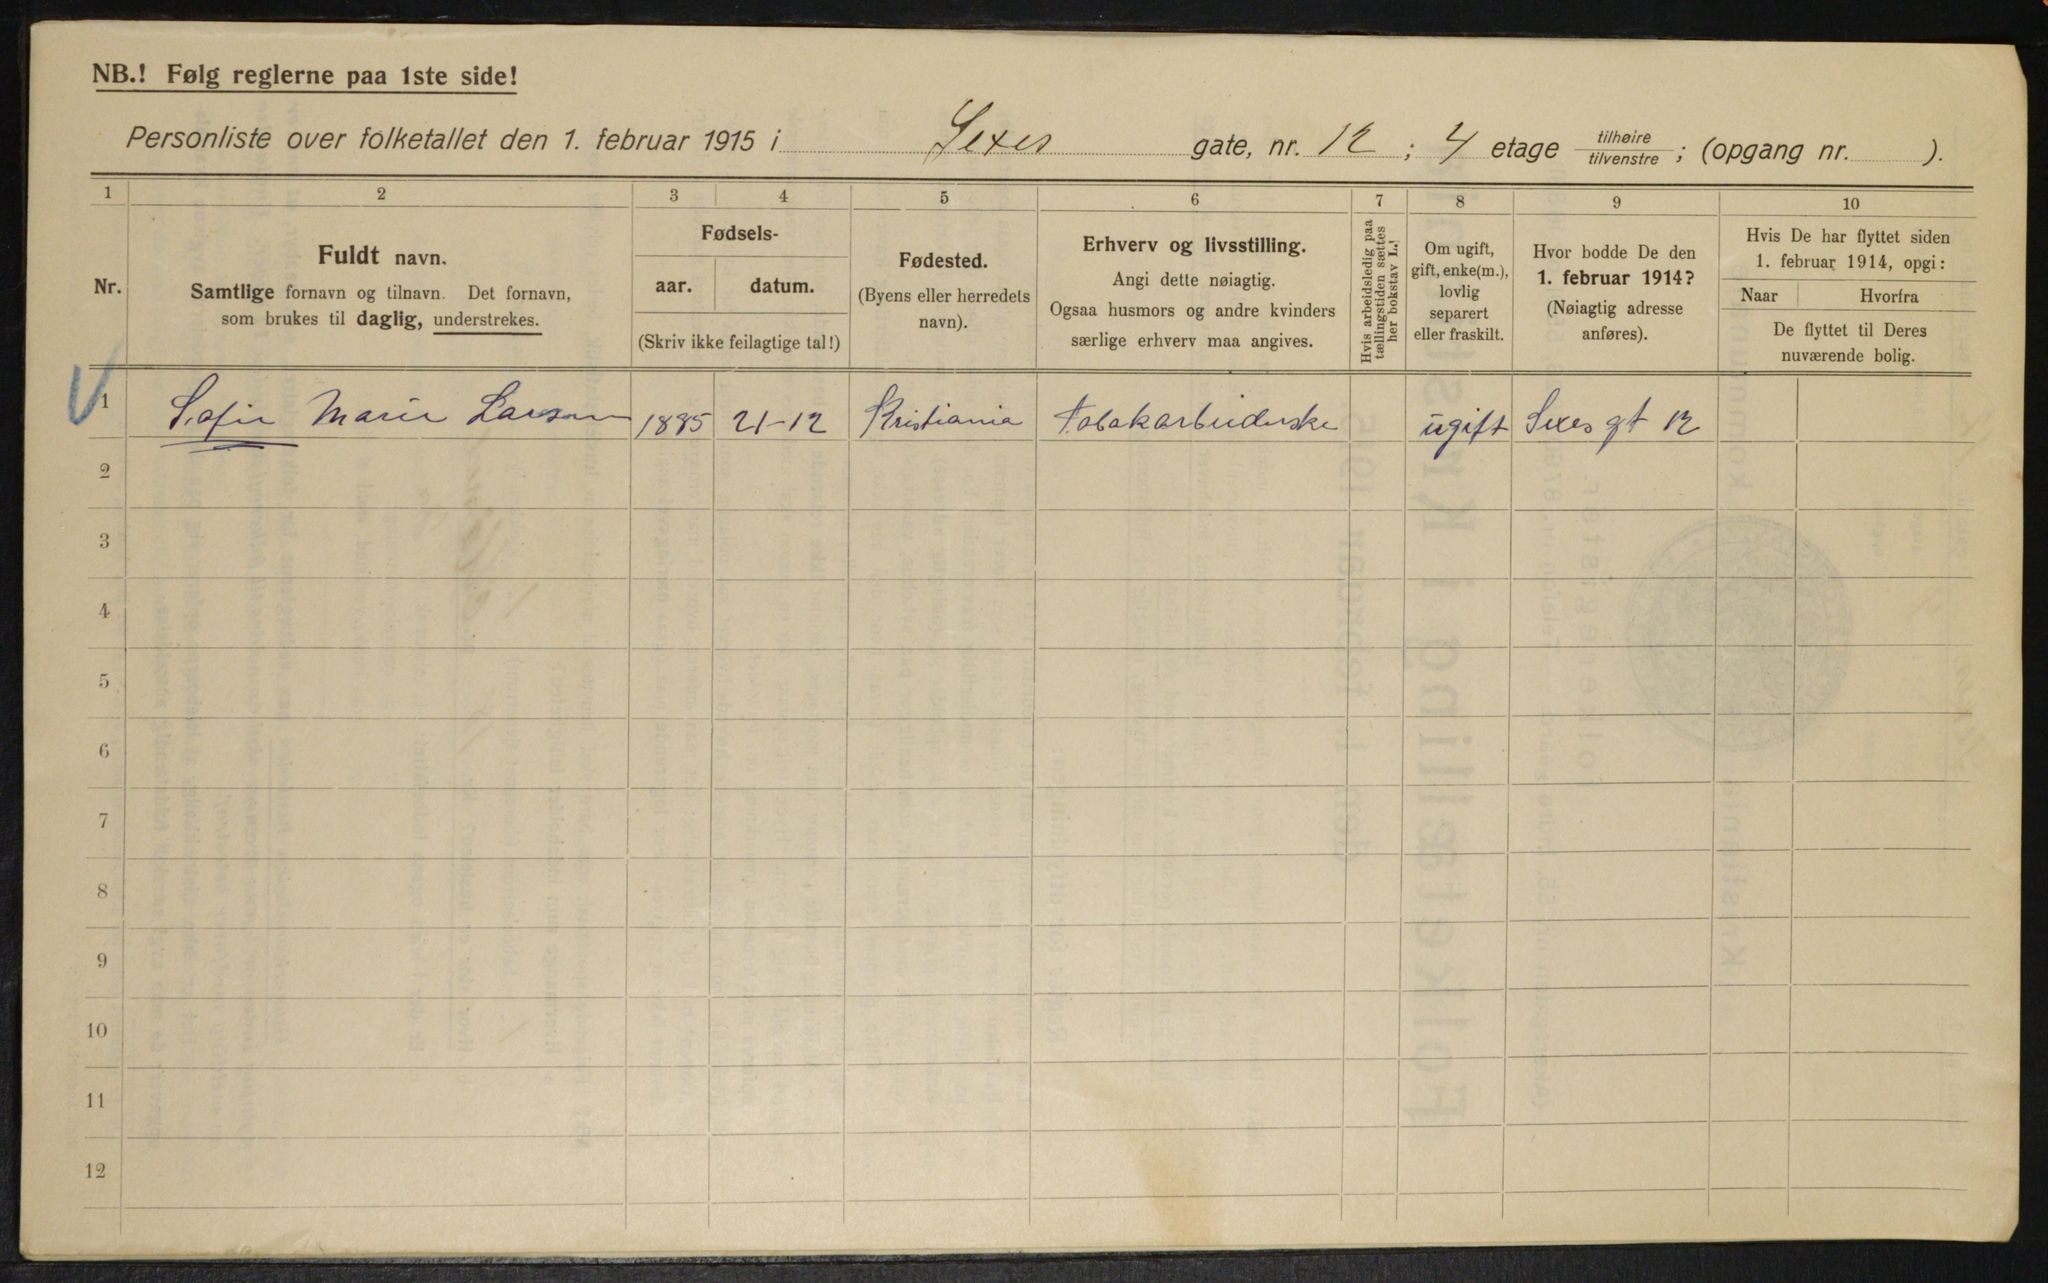 NB.! Følg reglerne paa 1ste side!
Personliste over folketallet den 1. februar 1915 i Sexes gate, nr. 12 ; 4 etage tilhøire tilvenstre ; (opgang nr. ).
1 2 3 4 5 6 7 8 9 10
Nr.
Fuldt navn.
Samtlige fornavn og tilnavn. Det fornavn,
som brukes til daglig, understrekes.
Fødsels-
aar. datum.
(Skriv ikke feilagtige tal!)
Fødested.
(Byens eller herredets
navn).
Erhverv og livsstilling.
Angi dette nøiagtig.
Ogsaa husmors og andre kvinders
særlige erhverv maa angives.
Hvis arbeidsledig paa
tællingstiden sættes
her bokstav L.
Om ugift,
gift, enke(m.),
lovlig
separert
eller fraskilt.
Hvor bodde De den
1. februar 1914?
(Nøiagtig adresse
anføres).
Hvis De har flyttet siden
1. februar 1914, opgi:
Naar Hvorfra
De flyttet til Deres
nuværende bolig.
1 Sofie Marie Larsen 1885 21-12 Kristiania Tobakarbeiderske ugift Sexes gt 12
2
3
4
5
6
7
8
9
10
11
12